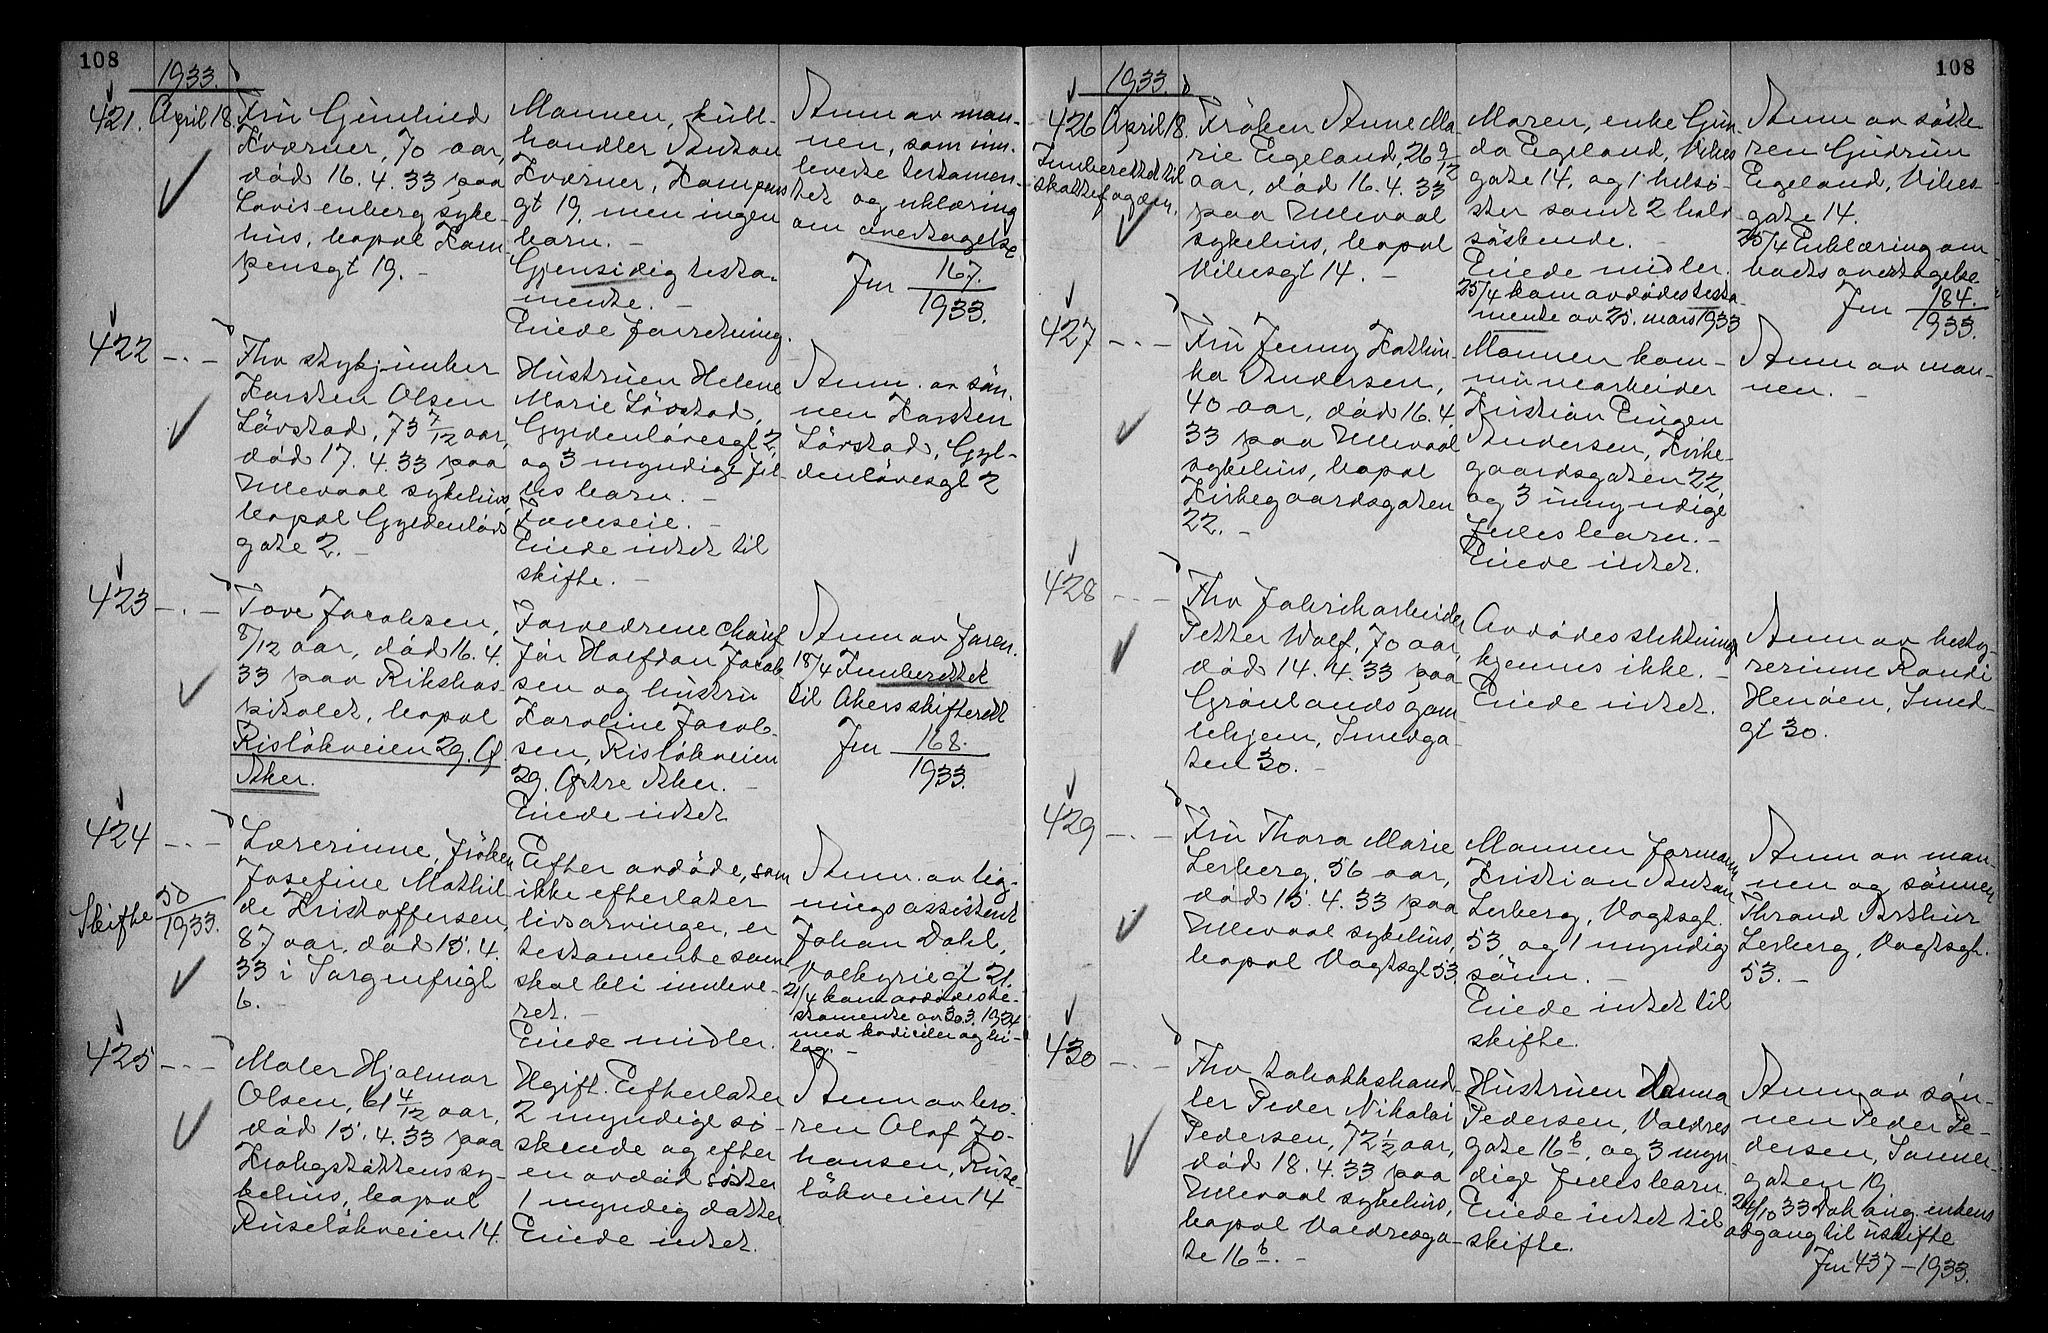 108
1933.
421. April 18.
Fru Gunhild
Kværner, 70 aar,
död 16.4.33 paa
Lovisenberg syke-
hus, bopæl Kam
pensgt 19. -
Mannen, kull-
handler Anton
Kværner, Kampens
gt 19, men ingen
barn. -
Gjensidig testa-
mente. -
Eiede forretning.
Anm av man-
nen, som inn-
leverte testamen-
tet og erklæring
om overtagelse
Jnr 167.
1933.
422 -.-
Fhv stykjunker
Karsten Olsen
Lövstad, 73 7/12 aar,
död 17.4.33 paa
Ullevaal sykehus,
bopæl Gyldenlövs
gate 2. -
Hustruen Helene
Marie Lövstad,
Gyldenlövesgt 2,
og 3 myndige fel-
les barn. -
Fælleseie. -
Eiede intet til
skifte. -
Anm. av søn-
nen Karsten
Lövstad, Gyl-
denlövesgt 2
423 -.-
Tove Jacobsen,
8/12 aar, död 16.4.
33 paa Rikshos-
pitalet, bopæl
Risløkveien 29. Ø.
Aker.
Forældrene chauf
för Halfdan Jacob-
sen og hustru
Karoline Jacob-
sen, Risløkveien
29. Østre Aker. -
Eiede intet
Anm av faren.
18/4 Innberettet
til Akers skifterett
Jnr 168.
1933.
424 -.-
Skifte 50
1933.
Lærerinne, fröken
Josefine Mathil
de Kristoffersen,
87 aar, död 15.4.
33 i Sorgenfrigt
6. -
Efter avdöde, som
ikke efterlater
livsarvinger, er
testamente som
skal bli innleve-
ret. -
Eiede midler.
Anm. av lig-
ningsassistent
Johan Dahl,
Valkyriegt 21.
21/4 kom avdödes te-
stamente av 30.3.1924
med kodiciler og bi-
lag. -
425 -.-
Maler Hjalmar
Olsen, 61 4/12 aar,
död 15.4.33 paa
Krohgstøttens sy-
kehus, bopæl
Ruseløkveien 14.
Ugift. Efterlater
2 myndige sö-
skende og efter
en avdöd söster
1 myndig datter
Eiede intet.
Anm av bro-
ren Olaf Jo-
hansen, Ruse-
løkveien 14
108
1933.
426 April 18.
Innberettet til
skattefogden.
Fröken Anne Ma-
rie Egeland, 26 9/12
aar, död 16.4.33
paa Ullevaal
sykehus, bopæl
Vibesgt 14. -
Moren, enke Gun-
da Egeland, Vibes
gate 14, og 1 helsö-
ster samt 2 halv
söskende. -
Eiede midler.
25/4 kom avdödes testa-
mente av 25. mars 1933
Anm av söste
ren Gudrun
Egeland, Vibes-
gate 14.
25/4 Erklæring om
boets overtagelse
Jnr 184.
1933.
427 -.-
Fru Jenny Kathin-
ka Andersen,
40 aar, död 16.4.
33 paa Ullevaal
sykehus, bopæl
Kirkegaardsgaten
22. -
Mannen kom-
munearbeider
Kristian Eugen
Andersen, Kirke-
gaardsgaten 22,
og 3 umyndige
felles barn. -
Eiede intet.
Anm av man-
nen. -
428 -.-
Fhv fabrikarbeider
Petter Wolf, 70 aar,
död 14.4.33 paa
Grönlands gam-
lehjem, Smedga-
ten 30. -
Avdödes slektninge
kjennes ikke. -
Eiede intet.
Anm av besty-
rerinne Randi
Henöen, Smed-
gt 30.
429 -.-
Fru Thora Marie
Lerberg, 56 aar,
död 15.4.33 paa
Ullevaal sykehus,
bopæl Vogtsgt 53.
Mannen formann
Kristian Anton
Lerberg, Vogtsgt.
53 og 1 myndig
sönn. -
Eiede intet til
skifte.
Anm av man-
nen og sönnen
Thrand Arthur
Lerberg, Vogtsgt.
53. -
430 -.-
Fhv tobakkshand-
ler Peder Nikolai
Pedersen, 72 1/2 aar,
död 18.4.33 paa
Ullevaal sykehus,
bopæl Valdresga-
te 16b. -
Hustruen Hanna
Pedersen, Valdres
gate 16b, og 3 myn-
dige felles barn.
Eiede intet til
skifte.
Anm av søn-
nen Peder Pe-
dersen, Sanner-
gaten 19
24/10 33 Dok ang. enkens
adgang til uskifte
Jnr 437-1933.